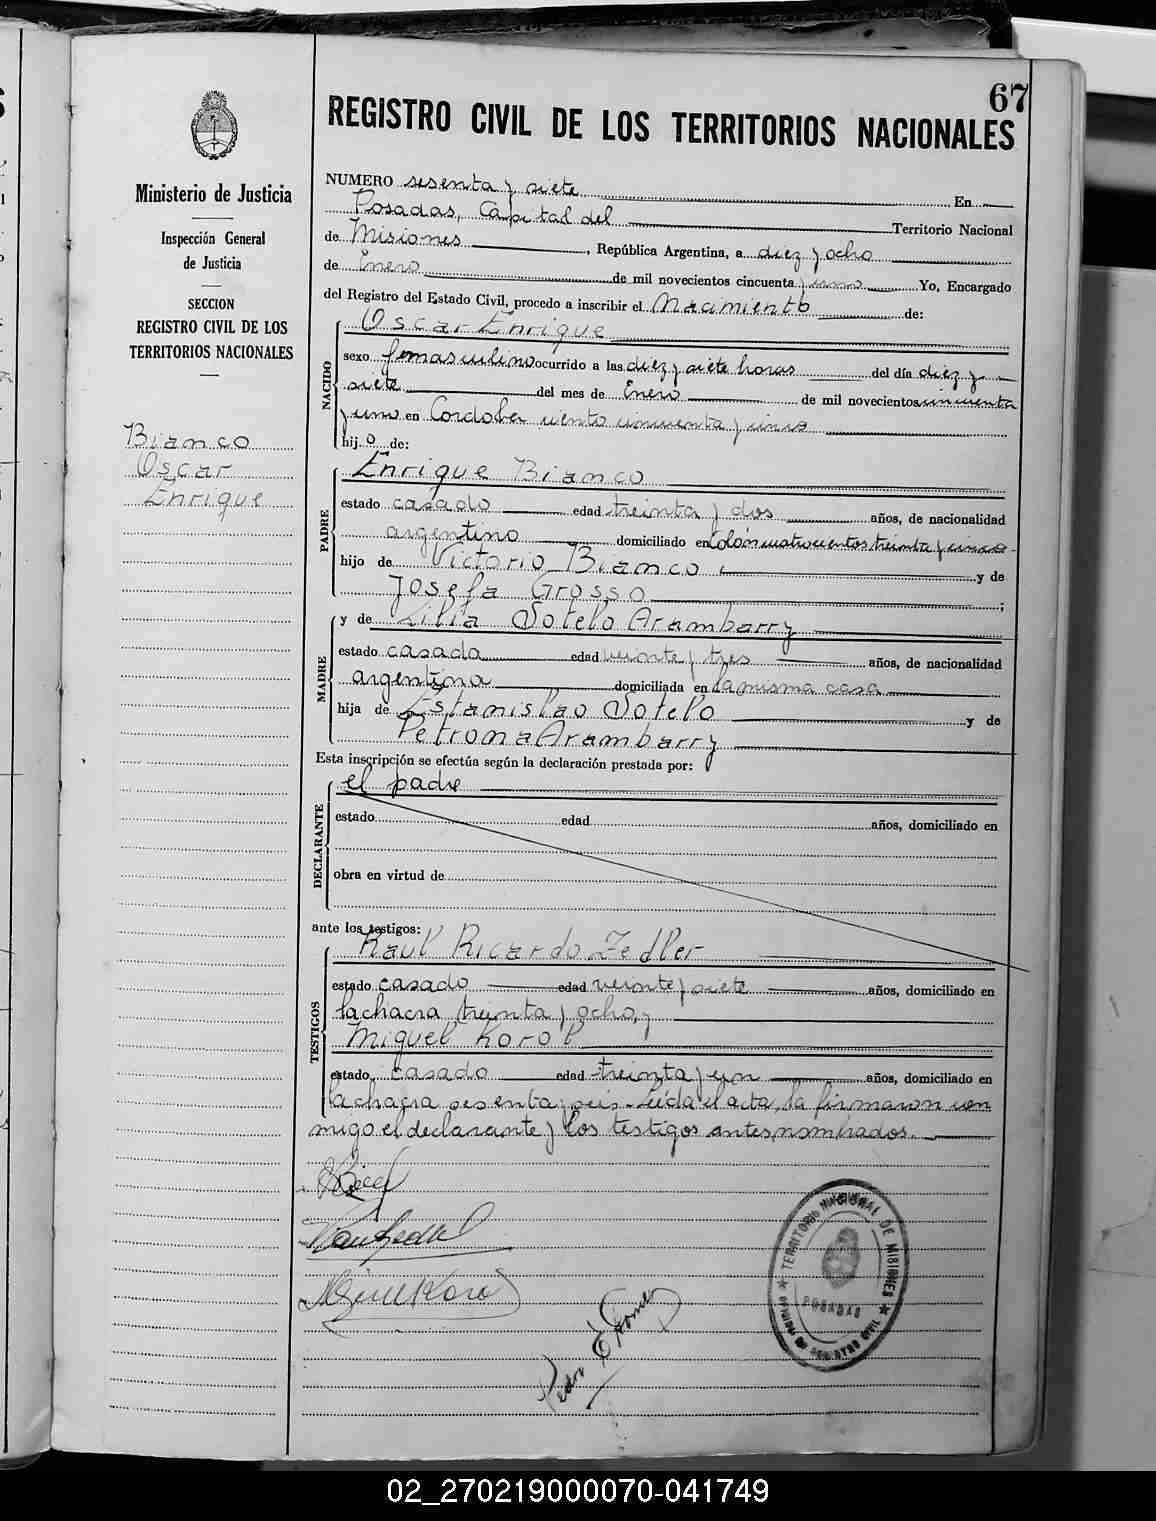 67
REGISTRO CIVIL DE LOS TERRITORIOS NACIONALES
Ministerio de Justicia
Inspección General
de Justicia
SECCION
REGISTRO CIVIL DE LOS
TERRITORIOS NACIONALES
Bianco
Oscar
Enrique
NUMERO sesenta y siete En
Posadas, Capital del Territorio Nacional
de Misiones, República Argentina, a diez y ocho
de Enero de mil novecientos cincuenta y uno Yo, Encargado
del Registro del Estado Civil, procedo a inscribir el Nacimiento de:
NACIDO
Oscar Enrique
sexo masculino ocurrido a las diez y siete horas del día diez y
siete del mes de Enero de mil novecientos cincuenta
y uno en Cordoba ciento cincuenta y cinco
hijo de:
PADRE
Enrique Bianco
estado casado edad treinta y dos años, de nacionalidad
argentino domiciliado en Colón cuatrocientos treinta y cinco
hijo de Victorio Bianco y de
Josefa Grosso;
MADRE
y de Lilia Sotelo Arambarry
estado casada edad veinte y tres años, de nacionalidad
argentina domiciliada en la misma casa
hija de Estanislao Sotelo y de
Petrona Arambarry
Esta inscripción se efectúa según la declaración prestada por:
DECLARANTE
el padre
estado edad años, domiciliado en
obra en virtud de
ante los testigos:
TESTIGOS
Raul Ricardo Zedler
estado casado edad veinte y siete años, domiciliado en
la chacra treinta y ocho, y
Miguel Korol
estado casado edad treinta y un años, domiciliado en
la chacra sesenta y seis. Leída el acta, la firmaron con
migo el declarante y los testigos antes nombrados.
Miguel Korol
TERRITORIO NACIONAL DE MISIONES
POSADAS
02_270219000070-041749